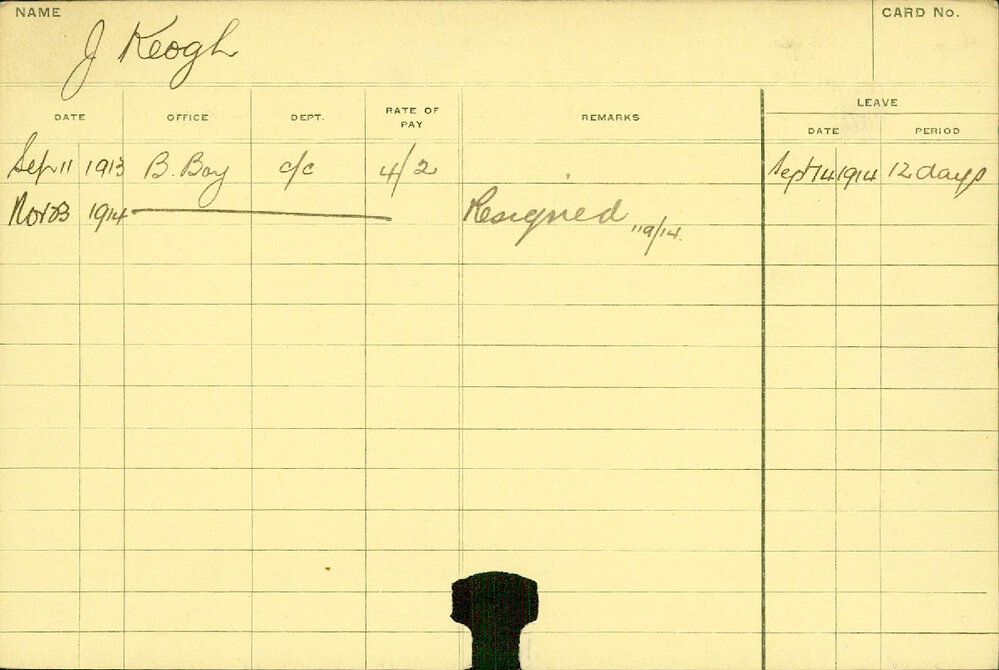 NAME
J Keogh
CARD No.
DATE OFFICE DEPT. RATE OF PAY REMARKS LEAVE
DATE PERIOD
Sep 11 1913 B. Boy c/c 4/2 Sept 14 1914 12 days
Nov 23 1914 Resigned